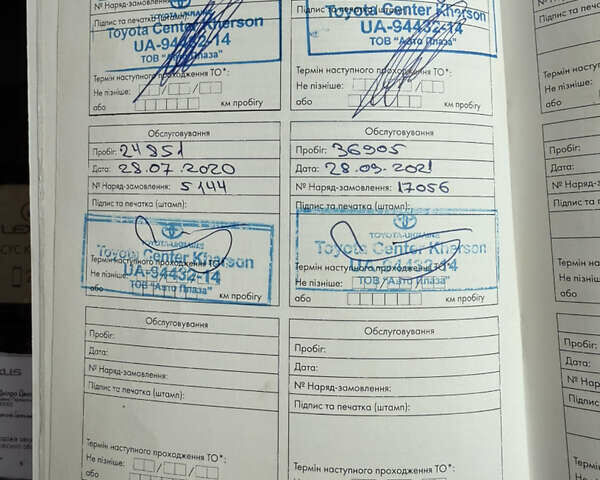 № Наряд-замовлення:
Підпис та печатка (штамп):
TOYOTA-UKRAINE
Toyota Center Kherson
UA-94432-14
ТОВ "Авто Плаза"
Термін наступного проходження ТО*:
Не пізніше:
або км пробігу
Підпис та печатка (штамп):
Toyota Center Kherson
UA-94432-14
ТОВ "Авто Плаза"
Термін наступного проходження ТО*:
Не пізніше:
або км пробігу
Обслуговування
Пробіг: 24851
Дата: 28.07.2020
№ Наряд-замовлення: 5144
Підпис та печатка (штамп):
TOYOTA-UKRAINE
Toyota Center Kherson
Термін наступного проходження ТО*:
UA-94432-14
Не пізніше:
ТОВ "Авто Плаза"
або км пробігу
Обслуговування
Пробіг: 36905
Дата: 28.09.2021
№ Наряд-замовлення: 17056
Підпис та печатка (штамп):
TOYOTA-UKRAINE
Toyota Center Kherson
Термін наступного проходження ТО*:
UA-94432-14
Не пізніше:
ТОВ "Авто Плаза"
або км пробігу
Обслуговування
Пробіг:
Дата:
№ Наряд-замовлення:
Підпис та печатка (штамп):
Термін наступного проходження ТО*:
Не пізніше:
або км пробігу
Обслуговування
Пробіг:
Дата:
№ Наряд-замовлення:
Підпис та печатка (штамп):
Термін наступного проходження ТО*:
Не пізніше:
або км пробігу
Не пізніше:
або
Пробіг:
Дата:
№ Наряд-
Підпис та п
Термін насту
Не пізніше:
або
Пробіг:
Дата:
№ Наряд-
Підпис та п
Термін
Не пізніше: